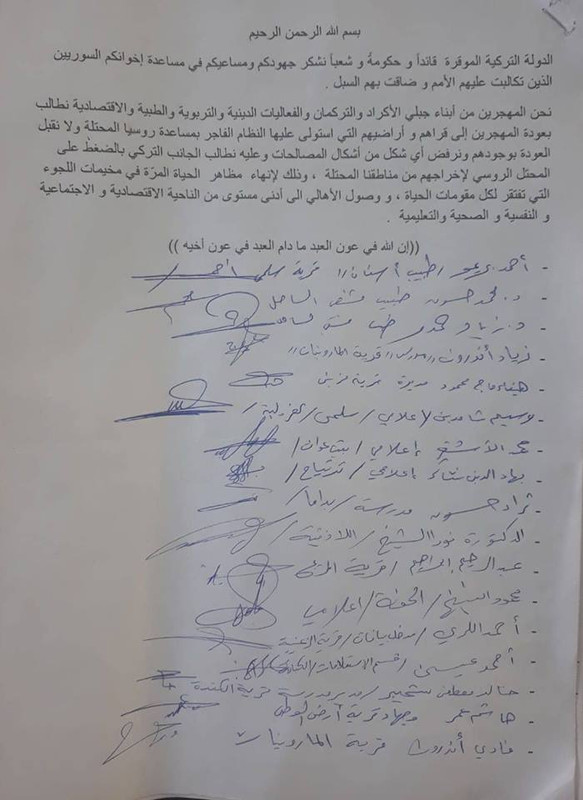 بسم الله الرحمن الرحيم
الدولة التركية الموقرة قائداً و حكومةً و شعباً نشكر جهودكم ومساعيكم في مساعدة إخوانكم السوريين
الذين تكالبت عليهم الأمم و ضاقت بهم السبل .
نحن المهجرين من أبناء جبلي الأكراد والتركمان والفعاليات الدينية والتربوية والطبية والاقتصادية نطالب
بعودة المهجرين إلى قراهم و أراضيهم التي استولى عليها النظام الفاجر بمساعدة روسيا المحتلة ولا نقبل
العودة بوجودهم ونرفض أي شكل من أشكال المصالحات وعليه نطالب الجانب التركي بالضغط على
المحتل الروسي لإخراجهم من مناطقنا المحتلة ، وذلك لإنهاء مظاهر الحياة المرّة في مخيمات اللجوء
التي تفتقر لكل مقومات الحياة ، و وصول الأهالي الى أدنى مستوى من الناحية الاقتصادية و الاجتماعية
و النفسية و الصحية والتعليمية .
((إن الله في عون العبد ما دام العبد في عون أخيه ))
- أحمد / طبيب أسنان / قرية سلمى
- د. محمد حسون طبيب مشفى الساحل
- د. زياد
- زياد أندرون // مدرس // قرية المارونيات //
- هيفاء حاج محمود مديرة قرية مزين
- وسيم شامدين / إعلامي / سلمى /
- محمد الأشقر إعلامي /
- بهاء الدين إعلامي /
- حسون مدرسة / بداما /
- الدكتورة نور الشيخ / اللاذقية /
- عبد الرحيم ابراهيم / قرية
- محمود الشيخ / الحفة / إعلامي
- أحمد / مدخل بيانات / قرية
- أحمد عيسى / قسم الاستعلامات /
- خالد / مدير مدرسة قرية الكندة
- هاشم عمر وجهاء قرية أرض الوطى
- فادي أندرون قرية المارونيات